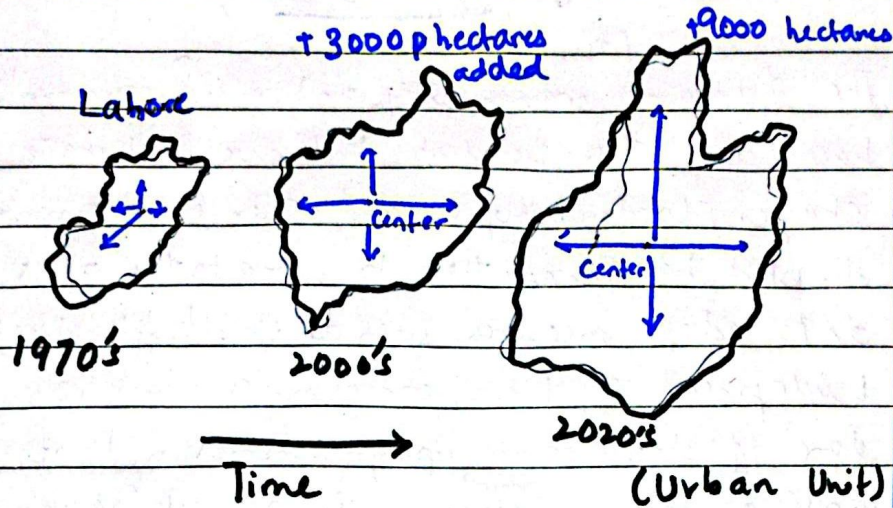 + 3000 p hectares
added
+9000 hectares
Lahore
center
center
1970's
2000's
2020's
Time
(Urban Unit)